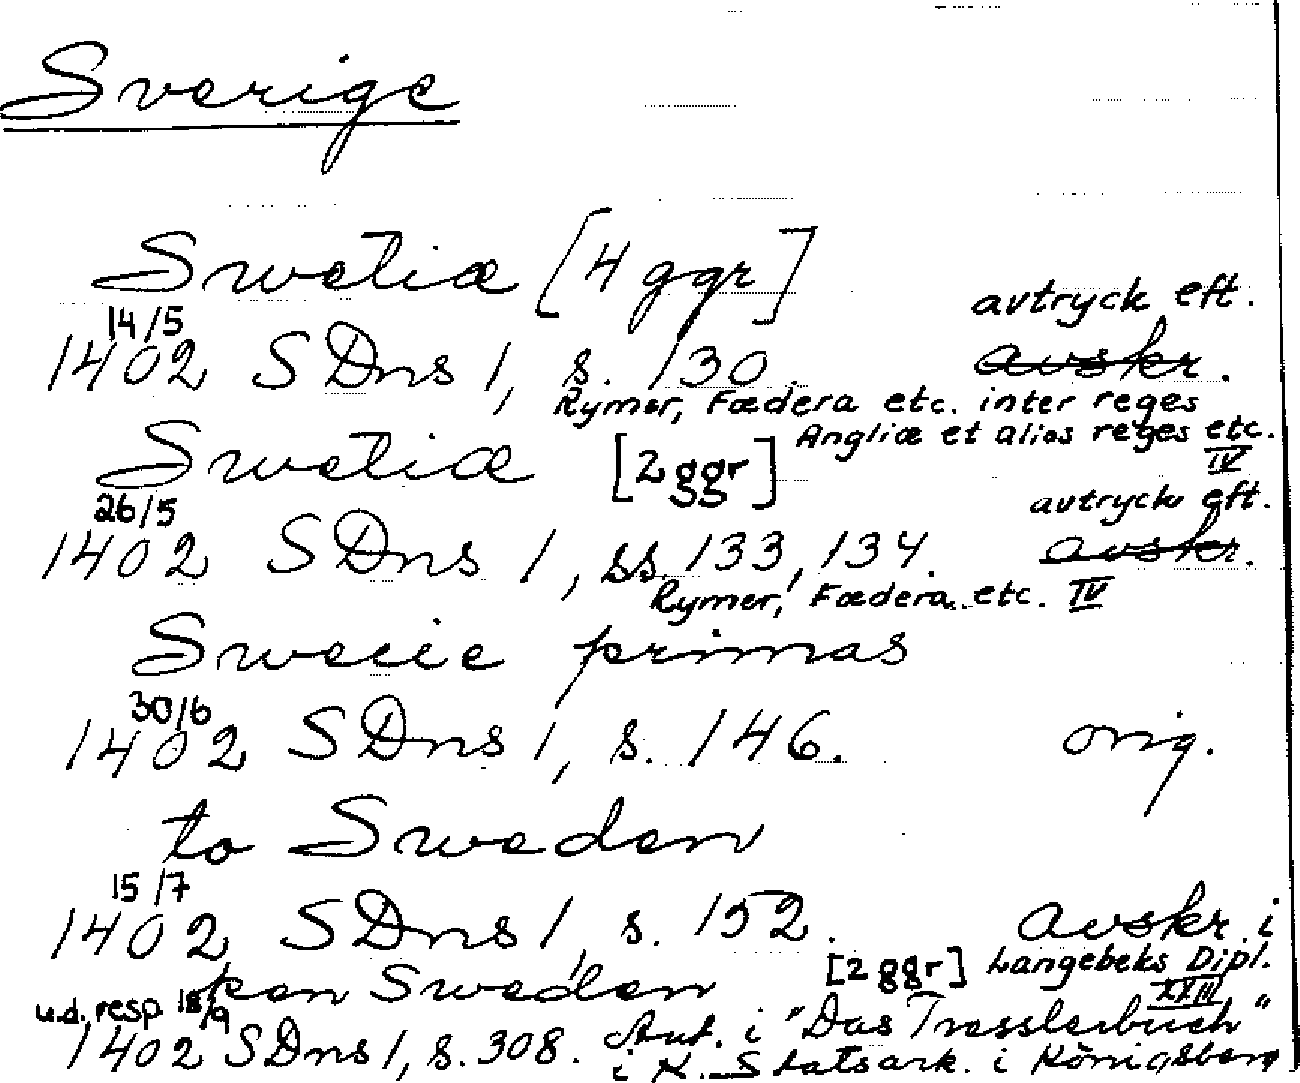 Sverige
Swetiæ [4 ggr]
14/5 avtryck eft.
1402 SDns 1, s. 130 avskr.
Rymer, Fædera etc. inter reges
Angliæ et alios reges etc. IV
Swetiæ [2 ggr]
26/5 avtryck eft.
1402 SDns 1, ss. 133, 134. avskr.
Rymer, Fædera etc. IV
Swecie primas
30/6
1402 SDns 1, s. 146. orig.
to Sweden
15/7
1402 SDns 1, s. 152. Avskr. i
Langebeks Dipl. XXIII
pen Sweden [2 ggr]
u.d. resp. 18/9
1402 SDns 1, s. 308. Ant. i "Das Tresslerbuch"
i K. Statsark. i Königsberg